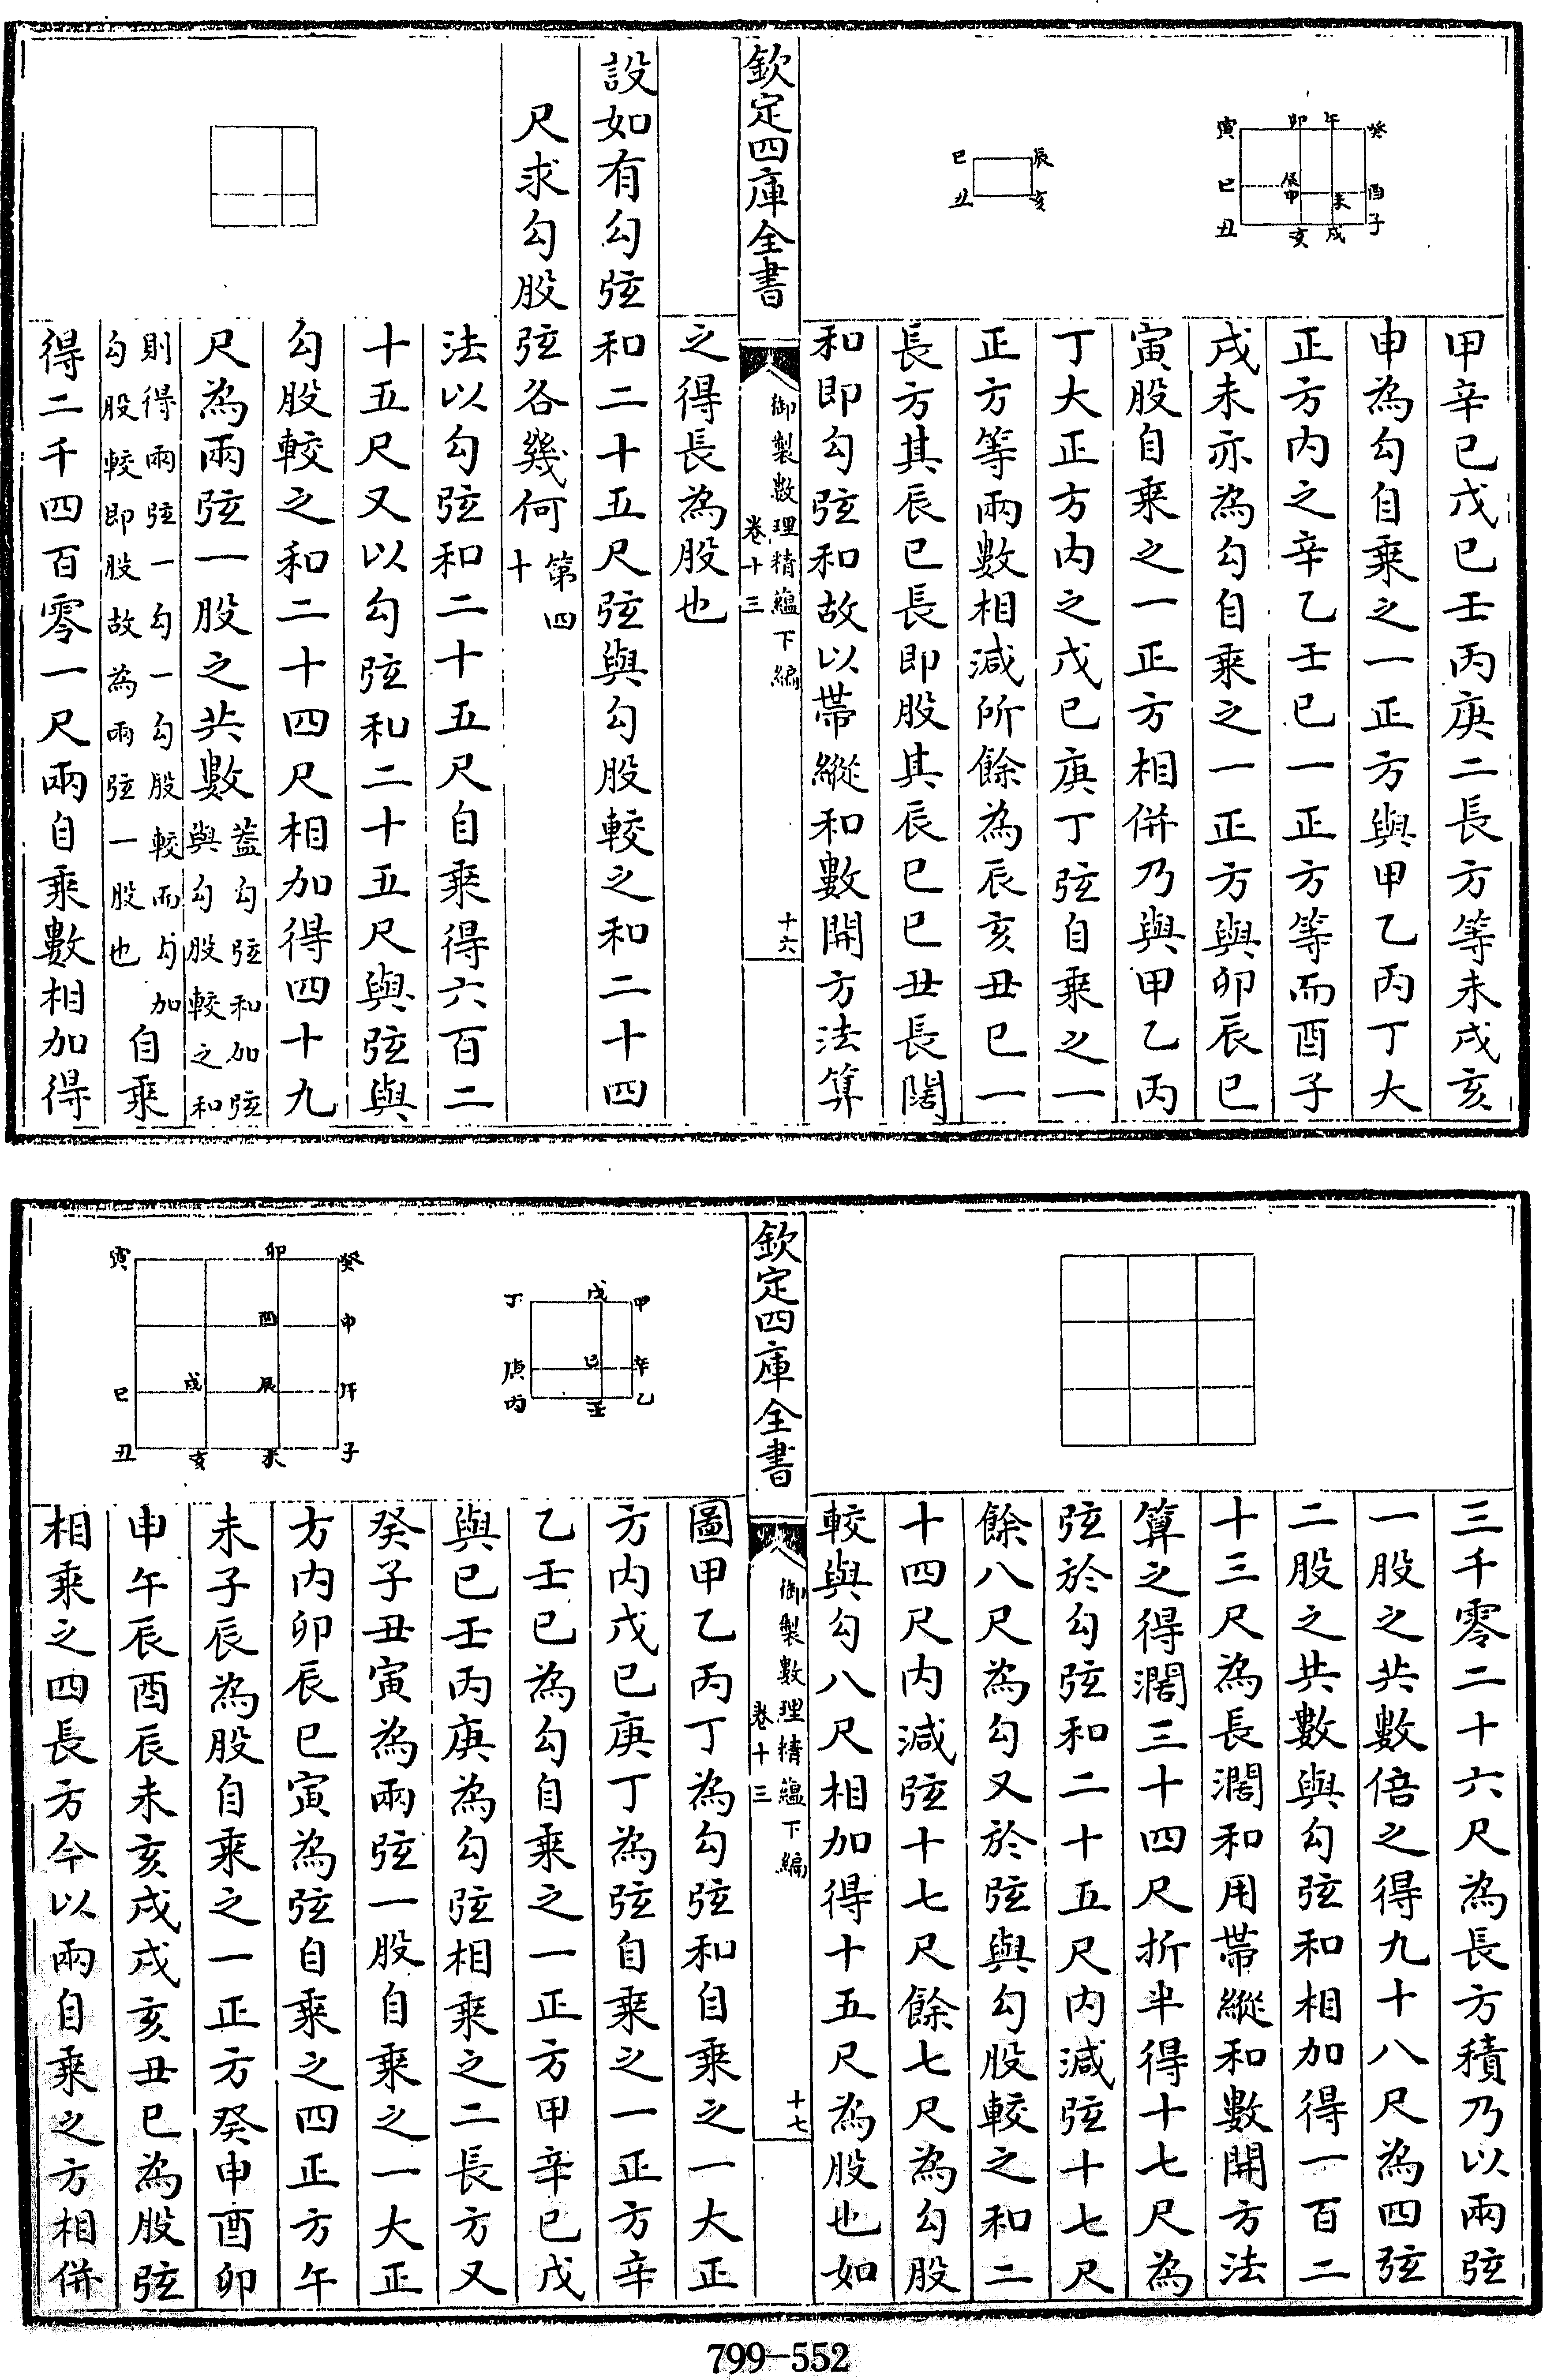 癸 午 卯 寅
酉 未 辰 申 巳
子 戌 亥 丑
辰 巳
亥 丑
甲辛巳戊巳壬丙庚二長方等未戌亥
申為勾自乘之一正方與甲乙丙丁大
正方内之辛乙壬巳一正方等而酉子
戌未亦為勾自乘之一正方與卯辰巳
寅股自乘之一正方相併乃與甲乙丙
丁大正方内之戊巳庚丁弦自乘之一
正方等兩數相減所餘為辰亥丑巳一
長方其辰巳長即股其辰巳巳丑長闊
和即勾弦和故以帶縱和數開方法算
欽定四庫全書
御製數理精蘊下編
卷十三
十六
之得長為股也
設如有勾弦和二十五尺弦與勾股較之和二十四
尺求勾股弦各幾何
第四
十
法以勾弦和二十五尺自乘得六百二
十五尺又以勾弦和二十五尺與弦與
勾股較之和二十四尺相加得四十九
尺為兩弦一股之共數
蓋勾弦和加弦
與勾股較之和
則得兩弦一勾一勾股較而勾加
勾股較即股故為兩弦一股也
自乘
得二千四百零一尺兩自乘數相加得
三千零二十六尺為長方積乃以兩弦
一股之共數倍之得九十八尺為四弦
二股之共數與勾弦和相加得一百二
十三尺為長濶和用帶縱和數開方法
算之得濶三十四尺折半得十七尺為
弦於勾弦和二十五尺内減弦十七尺
餘八尺為勾又於弦與勾股較之和二
十四尺内減弦十七尺餘七尺為勾股
較與勾八尺相加得十五尺為股也如
欽定四庫全書
御製數理精蘊下編
卷十三
十七
甲 戊 丁
辛 巳 庚
乙 壬 丙
癸 卯 寅
申 酉
午 辰 戌 巳
子 未 亥 丑
圖甲乙丙丁為勾弦和自乘之一大正
方内戊巳庚丁為弦自乘之一正方辛
乙壬巳為勾自乘之一正方甲辛巳戊
與巳壬丙庚為勾弦相乘之二長方又
癸子丑寅為兩弦一股自乘之一大正
方内卯辰巳寅為弦自乘之四正方午
未子辰為股自乘之一正方癸申酉卯
申午辰酉辰未亥戌戌亥丑巳為股弦
相乘之四長方今以兩自乘之方相併
799-552